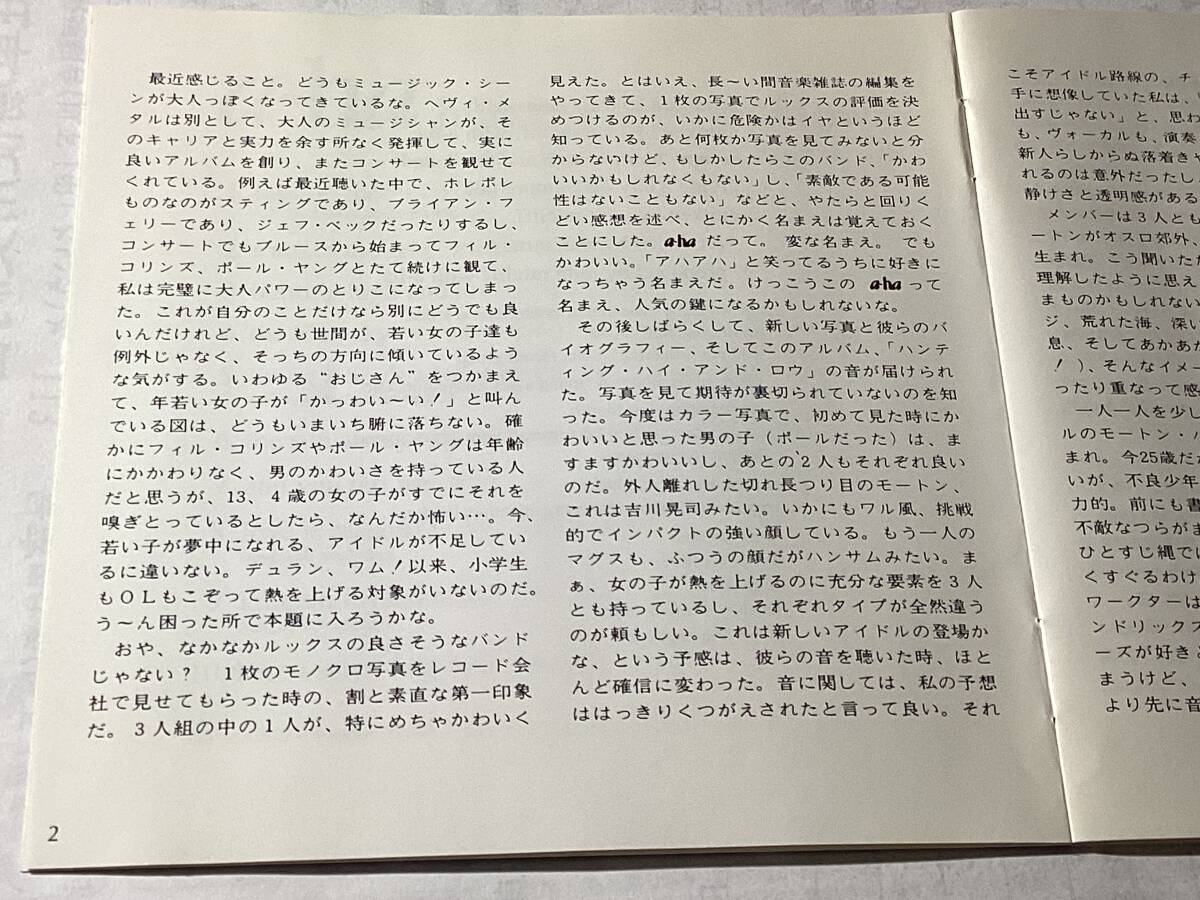 最近感じること。どうもミュージック・シー
ンが大人っぽくなってきているな。ヘヴィ・メ
タルは別として、大人のミュージシャンが、そ
のキャリアと実力を余す所なく発揮して、実に
良いアルバムを創り、またコンサートを観せて
くれている。例えば最近聴いた中で、ホレボレ
ものなのがスティングであり、ブライアン・フ
ェリーであり、ジェフ・ベックだったりするし、
コンサートでもブルースから始まってフィル・
コリンズ、ポール・ヤングとたて続けに観て、
私は完璧に大人パワーのとりこになってしまっ
た。これが自分のことだけなら別にどうでも良
いんだけれど、どうも世間が、若い女の子達も
例外じゃなく、そっちの方向に傾いているよう
な気がする。いわゆる“おじさん”をつかまえ
て、年若い女の子が「かっわい〜い！」と叫ん
でいる図は、どうもいまいち腑に落ちない。確
かにフィル・コリンズやポール・ヤングは年齢
にかかわりなく、男のかわいさを持っている人
だと思うが、13、4歳の女の子がすでにそれを
嗅ぎとっているとしたら、なんだか怖い…。今、
若い子が夢中になれる、アイドルが不足してい
るに違いない。デュラン、ワム！以来、小学生
もOLもこぞって熱を上げる対象がいないのだ。
う〜ん困った所で本題に入ろうかな。
おや、なかなかルックスの良さそうなバンド
じゃない？ 1枚のモノクロ写真をレコード会
社で見せてもらった時の、割と素直な第一印象
だ。3人組の中の1人が、特にめちゃかわいく
見えた。とはいえ、長〜い間音楽雑誌の編集を
やってきて、1枚の写真でルックスの評価を決
めつけるのが、いかに危険かはイヤというほど
知っている。あと何枚か写真を見てみないと分
からないけど、もしかしたらこのバンド、「かわ
いいかもしれなくもない」し、「素敵である可能
性はないこともない」などと、やたらと回りく
どい感想を述べ、とにかく名まえは覚えておく
ことにした。a-ha だって。 変な名まえ。 でも
かわいい。「アハアハ」と笑ってるうちに好きに
なっちゃう名まえだ。けっこうこの a-ha って
名まえ、人気の鍵になるかもしれないな。
その後しばらくして、新しい写真と彼らのバ
イオグラフィー、そしてこのアルバム、「ハンテ
ィング・ハイ・アンド・ロウ」の音が届けられ
た。写真を見て期待が裏切られていないのを知
った。今度はカラー写真で、初めて見た時にか
わいいと思った男の子（ポールだった）は、ま
すますかわいいし、あとの2人もそれぞれ良い
のだ。外人離れした切れ長つり目のモートン、
これは吉川晃司みたい。いかにもワル風、挑戦
的でインパクトの強い顔している。もう一人の
マグスも、ふつうの顔だがハンサムみたい。ま
ぁ、女の子が熱を上げるのに充分な要素を3人
とも持っているし、それぞれタイプが全然違う
のが頼もしい。これは新しいアイドルの登場か
な、という予感は、彼らの音を聴いた時、ほと
んど確信に変わった。音に関しては、私の予想
ははっきりくつがえされたと言って良い。それ
2
こそアイドル路線の、チ
手に想像していた私は、
出すじゃない」と、思わ
も、ヴォーカルも、演奏
新人らしからぬ落着き
れるのは意外だったし
静けさと透明感がある
メンバーは3人とも
ートンがオスロ郊外、
生まれ。こう聞いただ
理解したように思え
まものかもしれない
ジ、荒れた海、深い
息、そしてあかあか
！）、そんなイメー
ったり重なって感
一人一人を少し
ルのモートン・ハ
まれ。今25歳だ
いが、不良少年
力的。前にも書
不敵なつらがま
ひとすじ縄では
くすぐるわけ
ワークターは
ンドリックス
ーズが好きと
まうけど、
より先に音